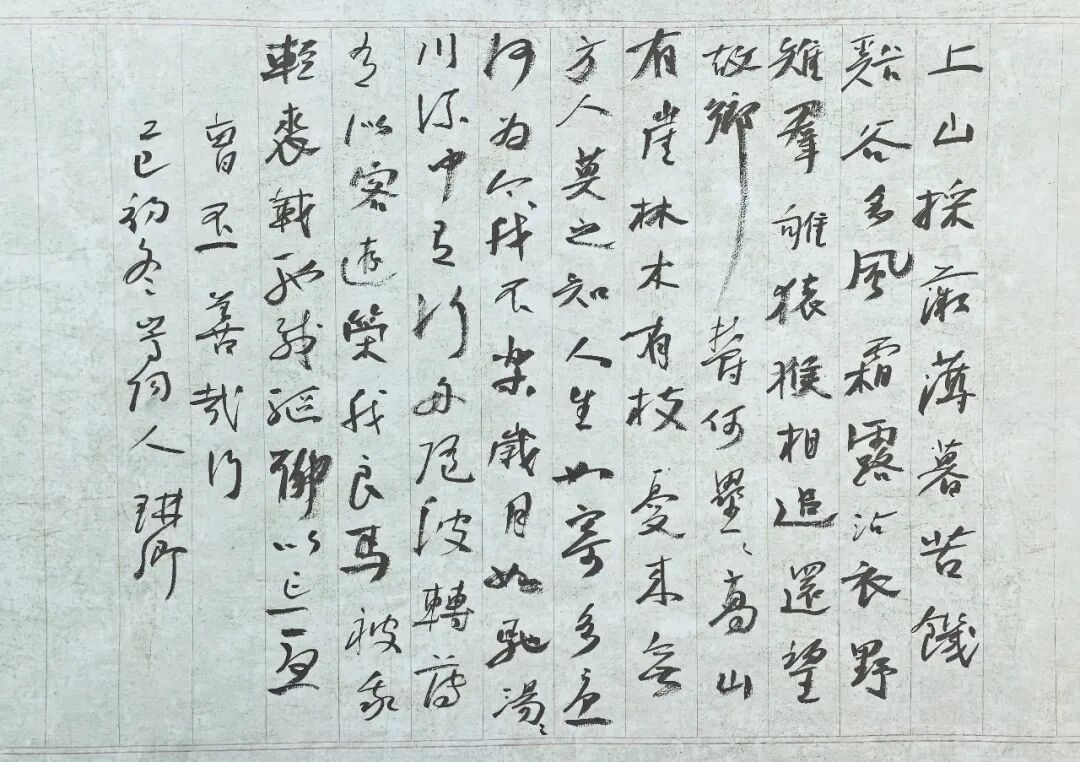 上山採薇薄暮苦饑
谿谷多風霜露沾衣野
雉羣雊猿猴相追還望
故鄉鬱何壘〻高山
有崖林木有枝憂來無
方人莫之知人生如寄多憂
何為今我不樂歲月如馳湯〻
川流中有行舟隨波轉薄
有似客遊策我良馬被我
輕裘載馳載驅聊以忘憂
曹丕善哉行
乙巳初冬人琪卿